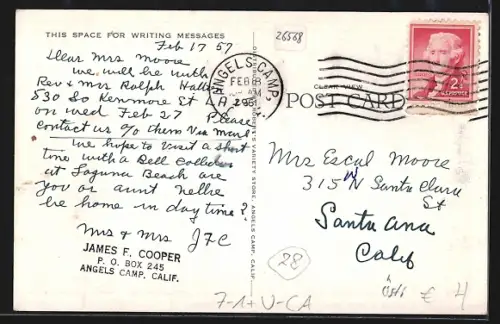 THIS SPACE FOR WRITING MESSAGES
Feb 17 57
Dear Mrs Moore
we will be with
Rev & Mrs Ralph
530 So Kenmore St L A
on wed Feb 27 Please
contact us c/o them Via mail
we hope to visit a short
time with a Bell
at Laguna Beach are
you or aunt Nellie
be home in day time?
Mrs & Mrs JFC
JAMES F. COOPER
P. O. BOX 245
ANGELS CAMP, CALIF.
VARIETY STORE, ANGELS CAMP, CALIF.
26568
ANGELS CAMP
FEB 18
AM
CLEAR VIEW
POST CARD
2¢
U.S. POSTAGE
Mrs Escal Moore
315 N Santa Clara
St
Santa Ana
Calif
28
7-1+V-CA
€ 4